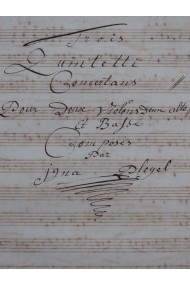 Trois
Quintetti
Concertans //
Pour Deux Violons Deux alto
et Basse
Composés
Par
Igna Pleyel